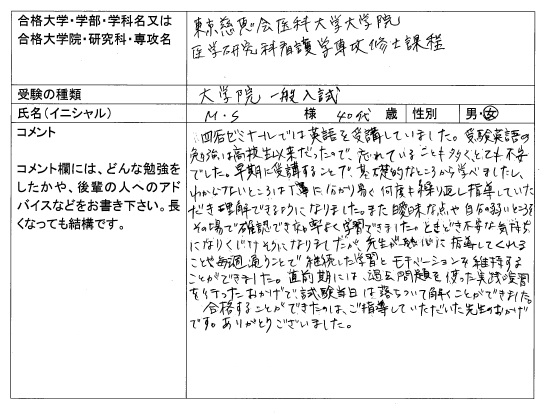 合格大学・学部・学科名又は
合格大学院・研究科・専攻名
東京慈恵会医科大学大学院
医学研究科看護学専攻修士課程
受験の種類
大学院 一般入試
氏名(イニシャル)
M・S 様 40代 歳 性別 男・女
コメント
コメント欄には、どんな勉強を
したかや、後輩の人へのアド
バイスなどをお書き下さい。長
くなっても結構です。
四谷ゼミナールでは英語を受講していました。受験英語の
勉強は高校生以来だったので、忘れていることも多くとても不安
でした。早期に受講することで、基礎的なところから学べましたし、
わからないところは丁寧に分かり易く何度も繰り返し指導していた
だき理解できるようになりました。また曖昧な点や自分の弱いところを
その場で確認でき効率よく学習できました。ときどき不安な気持ち
になりくじけそうになりましたが、先生が熱心に指導してくれる
ことや毎週通うことで継続した学習とモチベーションを維持する
ことができました。直前期には、過去問題を使った実践演習
を行ったおかげで、試験当日は落ちついて解くことができました。
合格することができたのは、ご指導していただいた先生のおかげ
です。ありがとうございました。